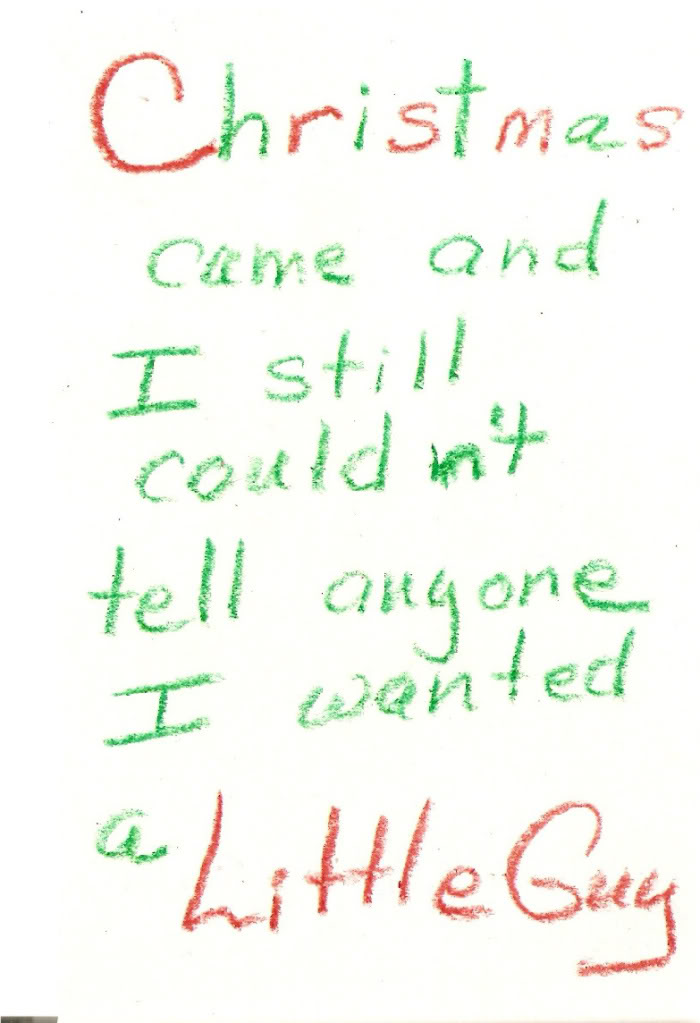 Christmas
came and
I still
couldn't
tell anyone
I wanted
a Little Guy